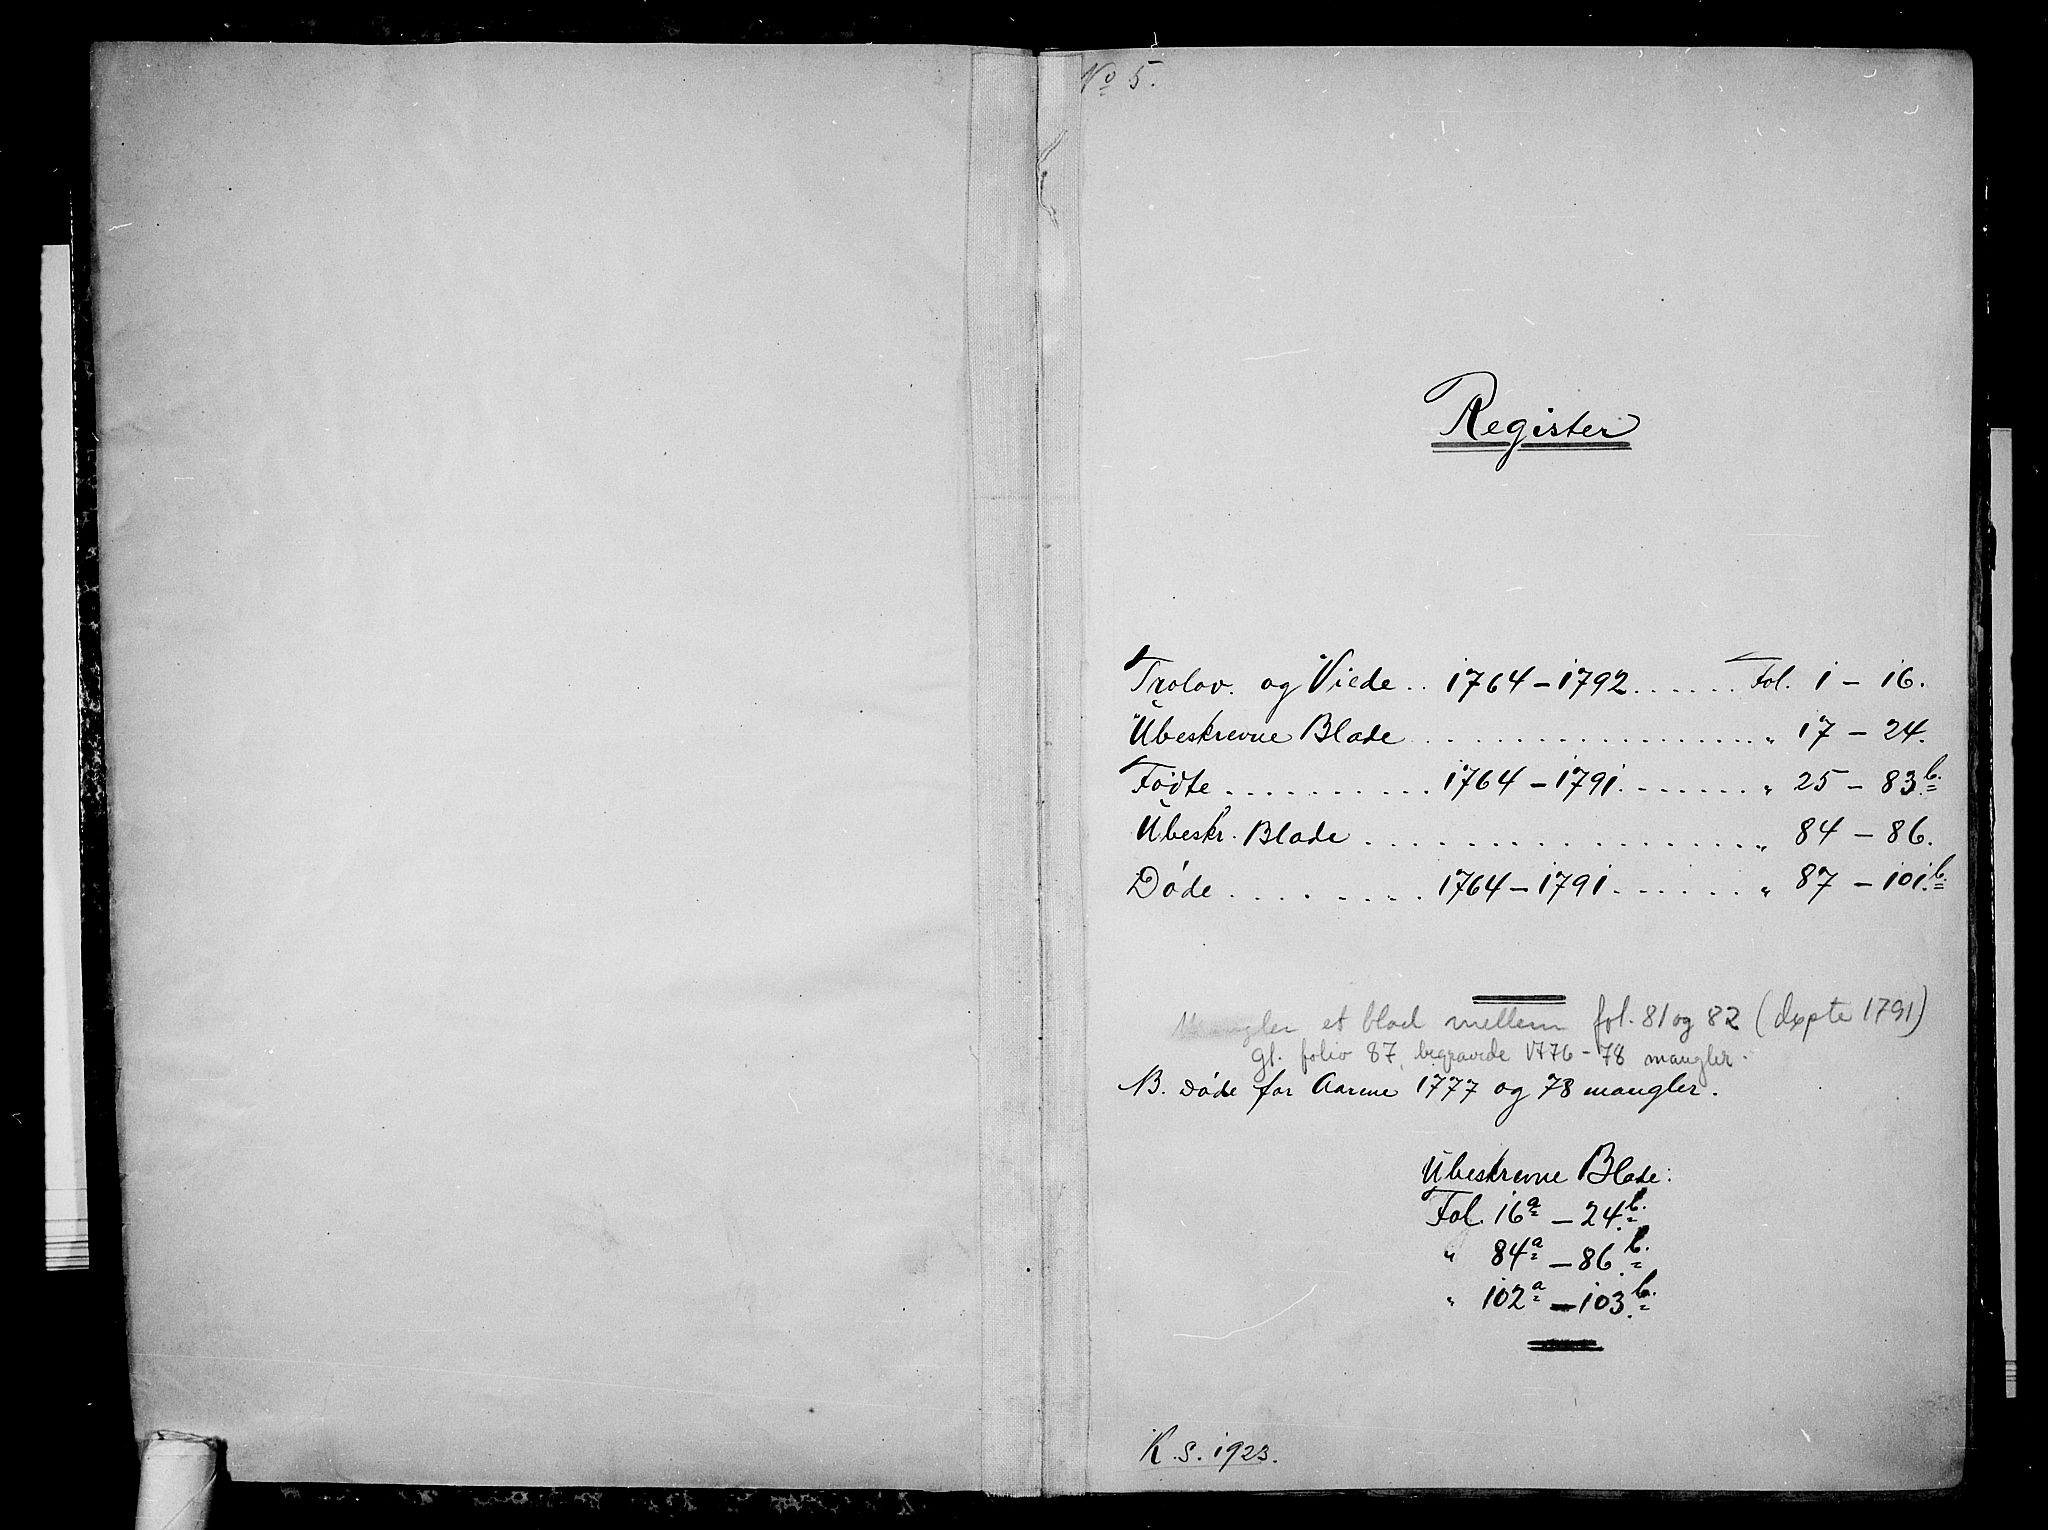 No 5.
Register
Trolov. og Viede .. 1764 - 1792 ...... Fol. 1 - 16.
Ubeskrevne Blade ................ " 17 - 24.
Fødte .......... 1764 - 1791 ....... " 25 - 83 b.
Ubeskr. Blade ................ " 84 - 86.
Døde ........ 1764 - 1791 ...... " 87 - 101 b.
Mangler et blad mellem fol. 81 og 82 (døpte 1791)
Gl. folio 87, begravede 1776-78 mangler.
NB. Døde for Aarene 1777 og 78 mangler.
Ubeskrevne Blade:
Fol. 16 a - 24 b.
" 84 a - 86 b.
" 102 a - 103 b.
K.S. 1923.